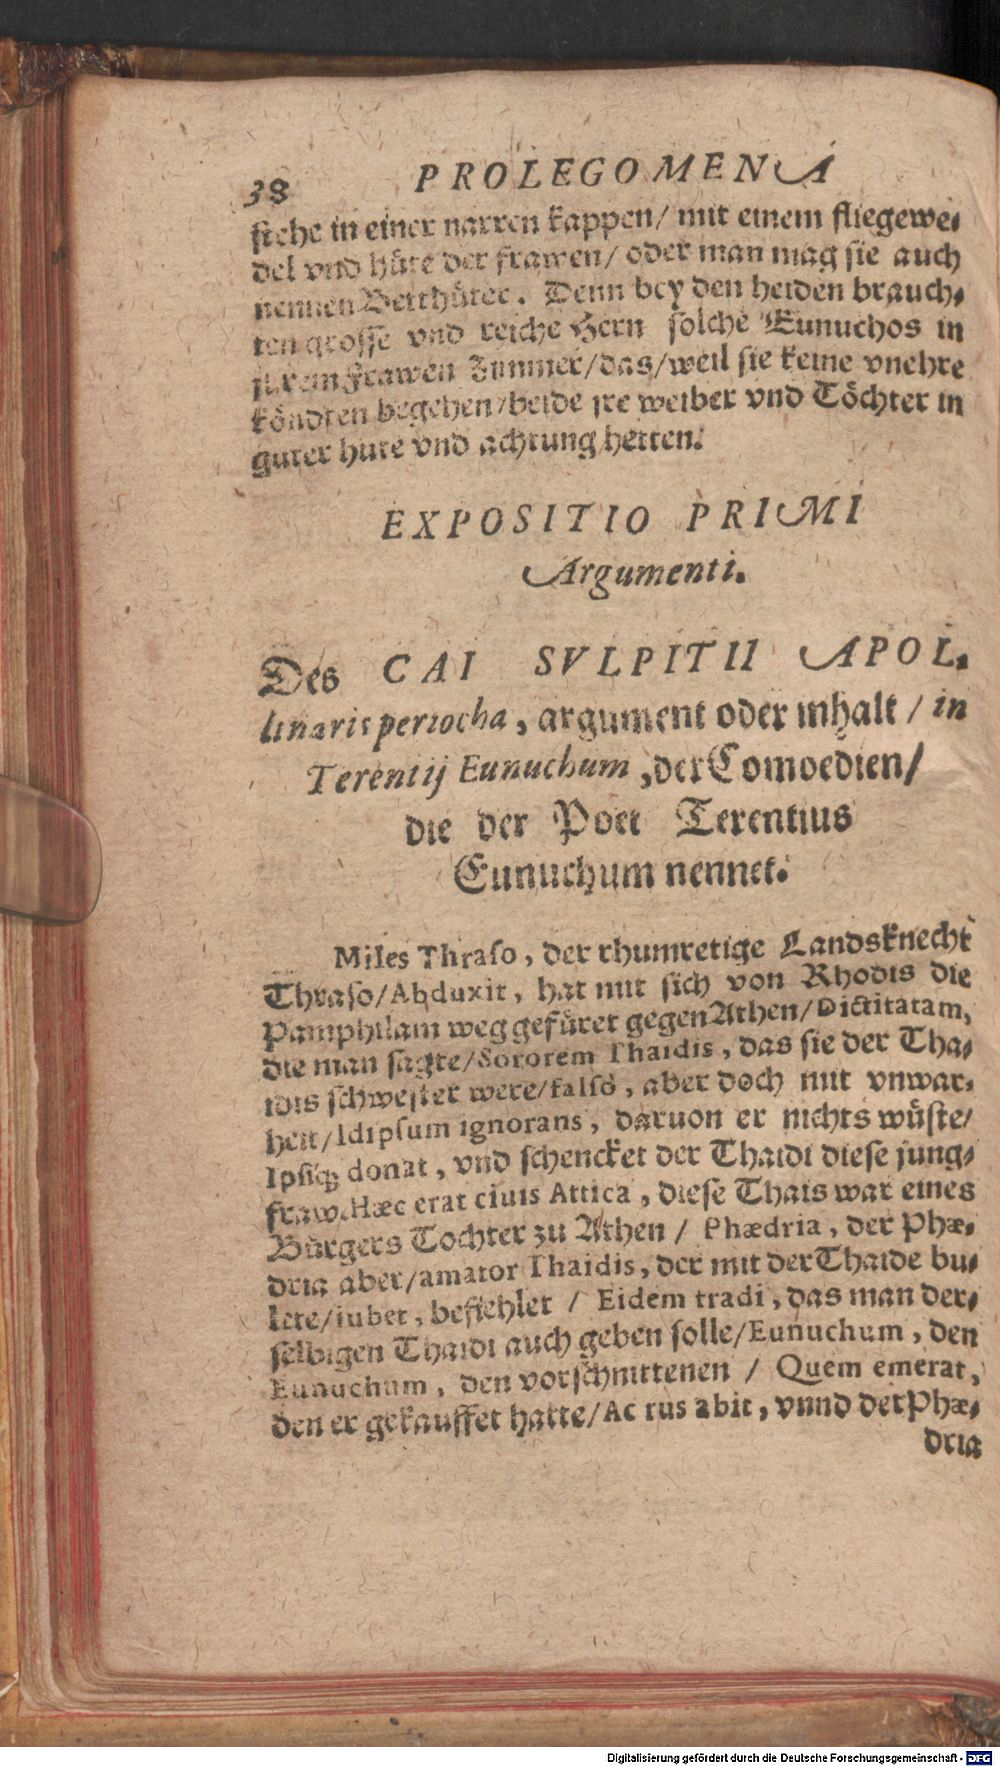 38 PROLEGOMENA
stehe in einer narren kappen/ mit einem fliegewe-
del vnd hüte der frawen/ oder man mag sie auch
nennen Betthüter. Denn bey den heiden brauch-
ten grosse vnd reiche Hern solche Eunuchos in
jhrem Frawen Zimmer/das/weil sie keine vnehre
köndten begehen/beide jre weiber vnd Töchter in
guter hute vnd achtung hetten.
EXPOSITIO PRIMI
Argumenti.
Des CAI SVLPITII APOL-
linaris periocha, argument oder inhalt / in
Terentij Eunuchum, der Comoedien/
die der Poet Terentius
Eunuchum nennet.
Miles Thraso, der rhumretige Landsknecht
Thraso/Abduxit, hat mit sich von Rhodis die
Pamphilam weg gefüret gegen Athen/Dictitatam,
die man sagte/Sororem Thaidis, das sie der Tha-
idis schwester were/falsò, aber doch mit vnwar-
heit/Idipsum ignorans, daruon er nichts wüste/
Ipsiq; donat, vnd schencket der Thaidi diese jung-
fraw. Hæc erat ciuis Attica, diese Thais war eines
Bürgers Tochter zu Athen / Phædria, der Phæ-
dria aber/amator Thaidis, der mit der Thaide bu-
lete/iubet, befiehlet / Eidem tradi, das man der-
selbigen Thaidi auch geben solle/Eunuchum, den
Eunuchum, den vorschnittenen / Quem emerat,
den er gekauffet hatte/Ac rus abit, vnnd der Phæ-
dria
Digitalisierung gefördert durch die Deutsche Forschungsgemeinschaft - DFG